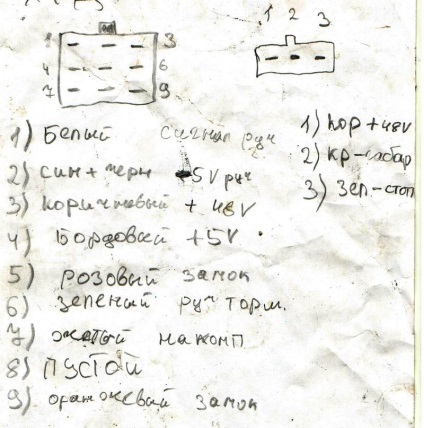 1 3
4 6
7 9
1 2 3
1) Белый сигнал руч
2) син+черн -5V руч
3) коричневый + 48V
4) Бордовый +5V
5) розовый замок
6) зеленый руч торм.
7) желтый на комп
8) ПУСТОЙ
9) оранжевый замок
1) кор +48V
2) кр-габар
3) зел-стоп